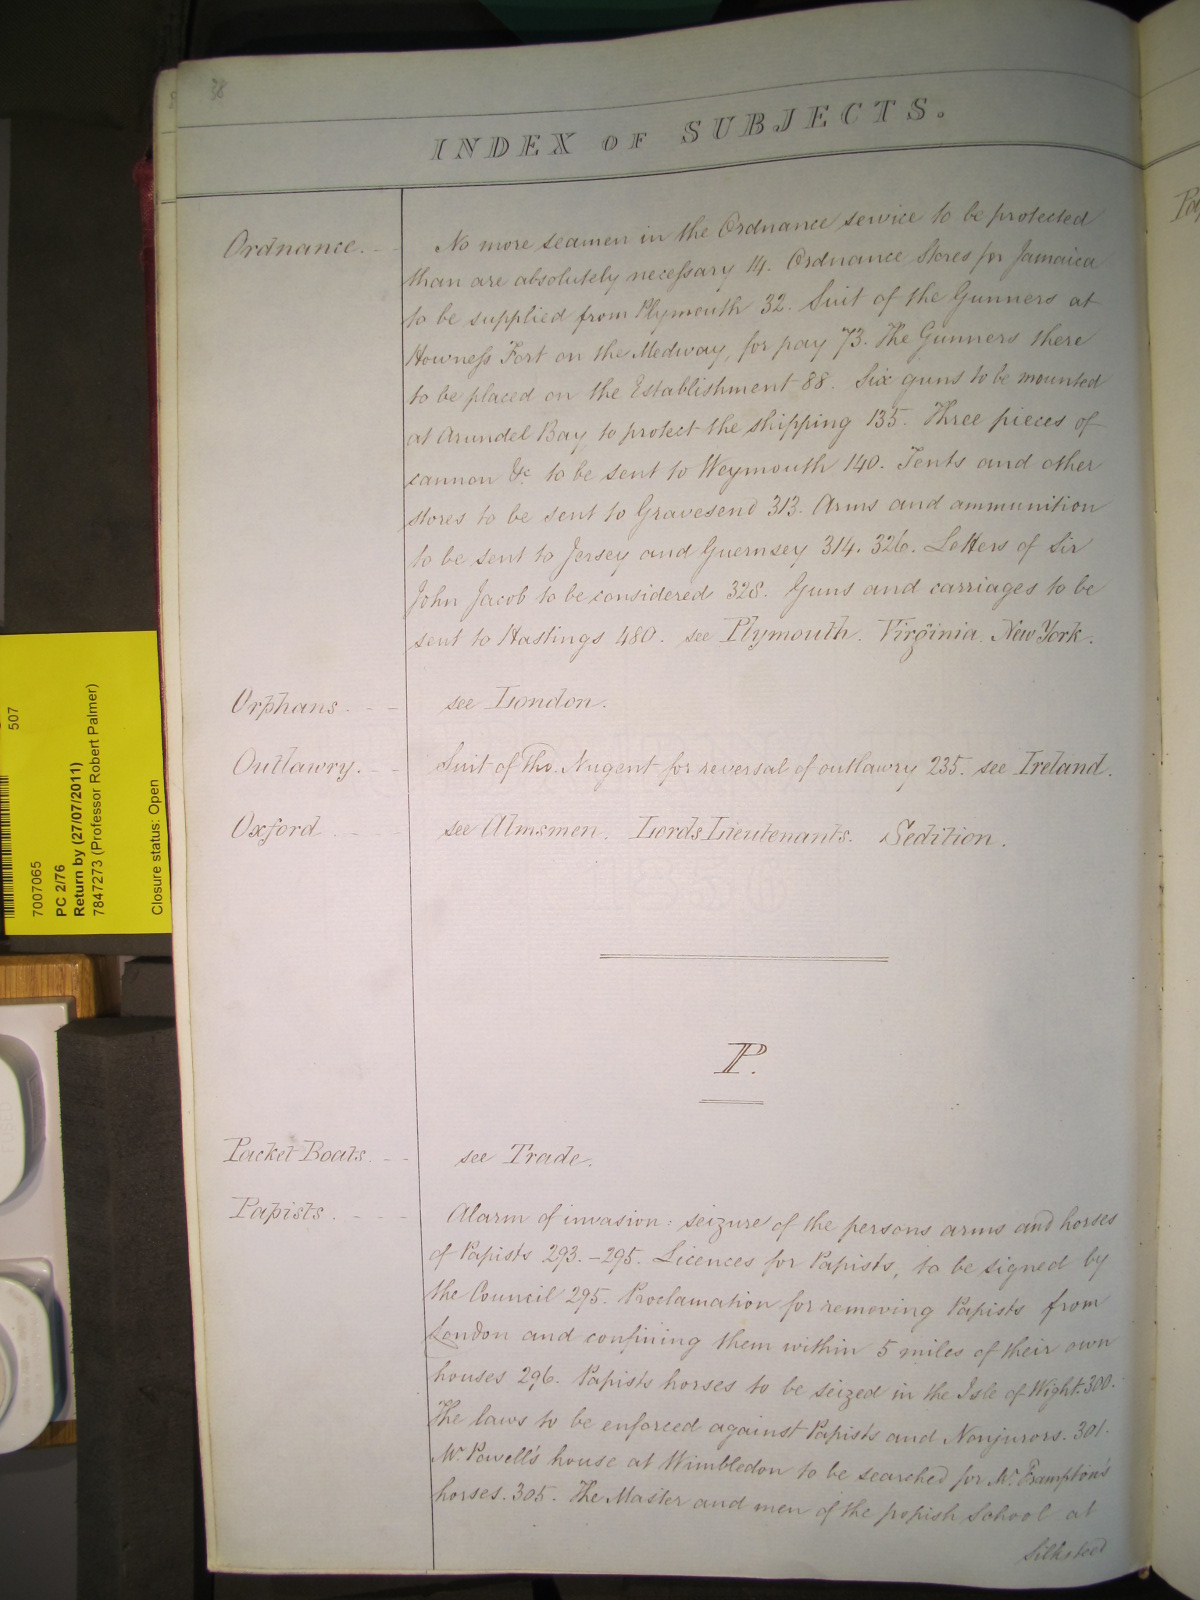 38
INDEX OF SUBJECTS.
Ordnance. - - No more seamen in the Ordnance service to be protected
than are absolutely necessary 14. Ordnance Stores for Jamaica
to be supplied from Plymouth 32. Suit of the Gunners at
Howness Fort on the Medway, for pay 73. The Gunners there
to be placed on the Establishment 88. Six guns to be mounted
at Arundel Bay, to protect the shipping 135. Three pieces of
cannon &c to be sent to Weymouth 140. Tents and other
stores to be sent to Gravesend 313. Arms and ammunition
to be sent to Jersey and Guernsey 314. 326. Letters of Sir
John Jacob to be considered 328. Guns and carriages to be
sent to Hastings 480. see Plymouth. Virginia. New York.
Orphans. - - see London.
Outlawry. - - Suit of Tho. Nugent for reversal of outlawry 235. see Ireland.
Oxford - - - see Almsmen. Lords Lieutenants. Sedition.
P.
Packet Boats. - - see Trade.
Papists. - - - Alarm of invasion: seizure of the persons arms and horses
of Papists 293.-295. Licences for Papists, to be signed by
the Council 295. Proclamation for removing Papists from
London and confining them within 5 miles of their own
houses 296. Papists horses to be seized in the Isle of Wight. 300.
The laws to be enforced against Papists and Nonjurors. 301.
Mr. Powell's house at Wimbledon to be searched for Mr. Frampton's
horses. 305. The Master and men of the popish School at
Silksteed
507
7007065
PC 2/76
Return by (27/07/2011)
7847273 (Professor Robert Palmer)
Closure status: Open